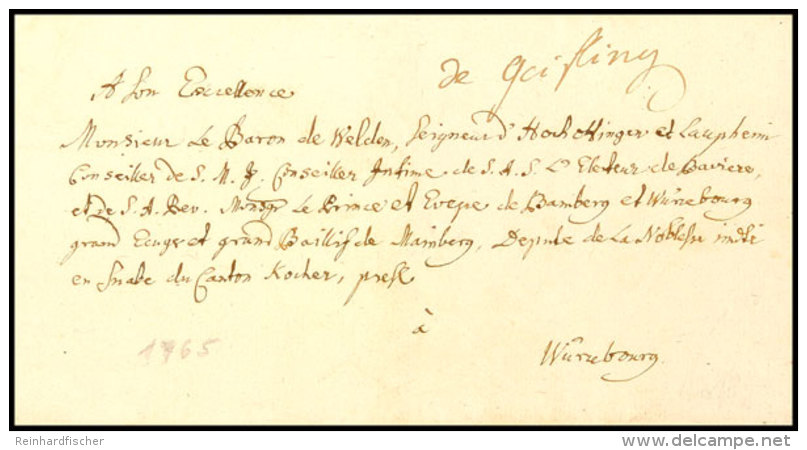 de Geisling
A Son Excellence
Monsieur Le Baron de Welden, Seigneur d'Hochaltingen et Laupheim
Conseiller de S. M. J. Conseiller Intime de S. A. S. L'Electeur de Baviere,
et de S. A. Rev. Monsgr Le Prince et Eveqe de Bamberg et Würzebourg
grand Ecuyer et grand Baillif de Mainberg, Depute de La Noblesse
en Suabe du Canton Kocher, pres.
à
1765
Würzebourg
Reinhardfischer
www.delcampe.net